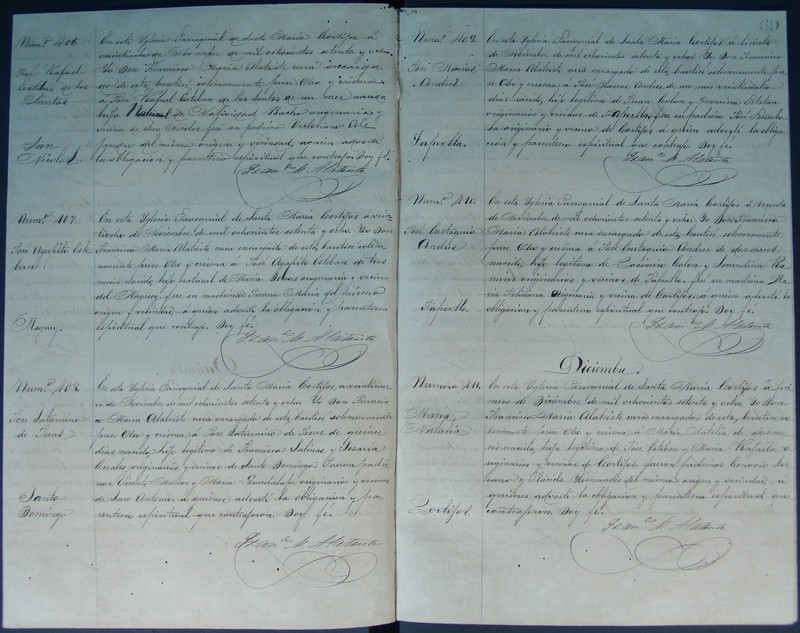 Num.º 406.
José Rafael
Esteban de los
Santos
San
Nicolas.
En esta Yglesia Parroquial de Santa María Cortifos á
veintiocho de Noviembre de mil ochocientos setenta y ocho.
Yo Don Francisco María Alatriste cura encarga
do de esta, bautisé solemnemente puse Oleo y crisma
á José Rafael Esteban de los Santos de un mes nacido
hijo Natural de Natividad originaria y
vecina de San Nicolas fué su padrino Victoriano Ale
jandro del mismo origen y vecindad, a quien advertí
la obligacion y parentesco espiritual que contrajo. Doy fé.
Fran.co M. Alatriste
Num.º 407.
José Agapito Este
ban
Maguey.
En esta Yglesia Parroquial de Santa María Cortifos á vein
tiocho de Noviembre de mil ochocientos setenta y ocho. Yo Don
Francisco María Alatriste cura encargado de esta, bautisé solem
nemente puse Oleo y crisma á José Agapito Esteban de tres
meses nacido, hijo natural de María originaria y vecina
del Maguey, fue su madrina Juana María del mismo
origen y vecindad a quien advertí la obligacion y parentesco
espiritual que contrajo. Doy fé.
Fran.co M. Alatriste
Num.º 408.
José Saturnino
de Jesus
Santo
Domingo
En esta Yglesia Parroquial de Santa María Cortifos á veintinue
ve de Noviembre de mil ochocientos setenta y ocho Yo Don Francis
co María Alatriste cura encargado de esta, bautisé solemnemente
puse Oleo y crisma á José Saturnino de Jesus de quince
dias nacido, hijo legítimo de Francisco Salinas y Cesaria
originarios y vecinos de Santo Domingo. Fueron padri
nos Vicente y María Guadalupe originarios y vecinos
de San Antonio á quienes advertí la obligacion y pa
rentesco espiritual que contrajeron. Doy fé.
Fran.co M. Alatriste
Num.º 409.
José Marcos
Andres
En esta Yglesia Parroquial de Santa María Cortifos á treinta
de Noviembre de mil ochocientos setenta y ocho Yo Don Francisco
María Alatriste cura encargado de esta, bautisé solemnemente pu
se Oleo y crisma á José Marcos Andres de un mes veintinueve
dias nacido, hijo legítimo de y Francisca
originarios y vecinos de fue su padrino José
originario y vecino de Cortifos á quien advertí la obliga
cion y parentesco espiritual que contrajo. Doy fé.
Fran.co M. Alatriste
Num.º 410.
José Eustaquio
Andres
En esta Yglesia Parroquial de Santa María Cortifos á treinta
de Noviembre de mil ochocientos setenta y ocho Yo Don Francisco
María Alatriste cura encargado de esta, bautisé solemnemente
puse Oleo y crisma á José Eustaquio Andres de dos meses
nacido, hijo legítimo de y Secundina Ra
mires originarios y vecinos de fué su madrina Ma
ria originaria y vecina de Cortifos, á quien advertí la
obligacion y parentesco espiritual que contrajo. Doy fé.
Fran.co M. Alatriste
Diciembre.
Numero 411.
Maria
Natalia
Cortifos
En esta Yglesia Parroquial de Santa María Cortifos á pri
mero de Diciembre de mil ochocientos setenta y ocho Yo Don
Francisco María Alatriste cura encargado de esta, bautisé so
lemnemente puse Oleo y crisma á María Natalia de dos me
ses nacida, hija legítima de José Esteban y María Rafaela o
riginarios y vecinos de Cortifos, fueron padrinos
y Hernandes del mismo origen y vecindad, á
quienes advertí la obligacion y parentesco espiritual que
contrajeron. Doy fé.
Fran.co M. Alatriste